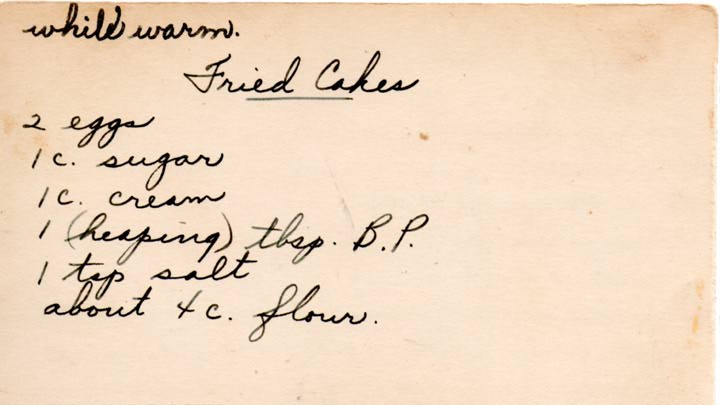 while warm.
Fried Cakes
2 eggs
1 c. sugar
1 c. cream
1 (heaping) tbsp. B.P.
1 tsp salt
about 4 c. flour.